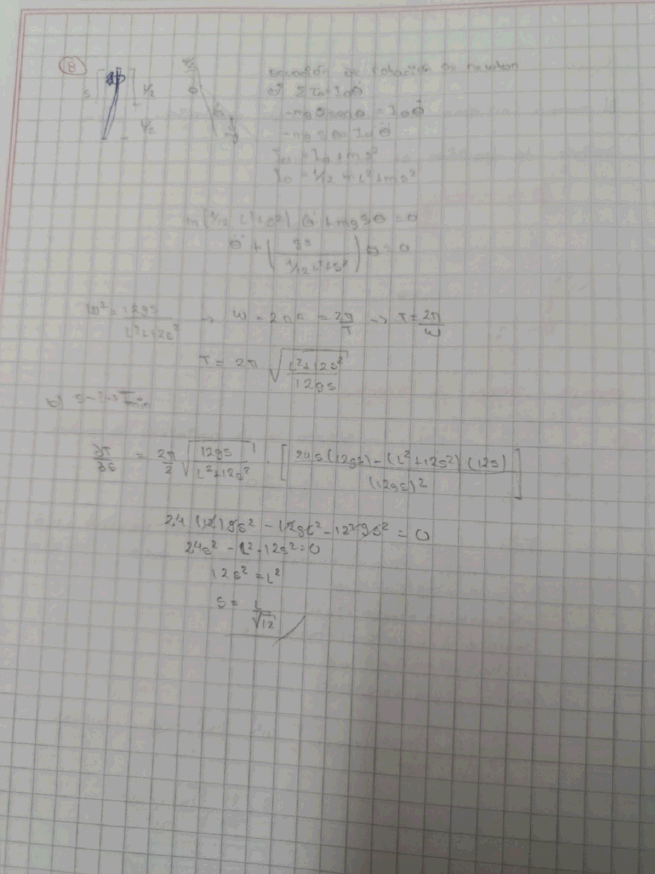 B
S L/2 θ
L/2 mg
Ecuación de rotación de newton
a) ΣI0 = I0θ̈
-mg s senθ = I0θ̈
-mg s θ = I0 θ̈
I0 = IG + ms²
I0 = 1/12 mL² + ms²
m(1/12 L² + s²) θ̈ + mgsθ = 0
θ̈ + (gs / (1/12 L² + s²)) θ = 0
ω² = 12gs / (L² + 12s²) → ω = = 2π/T → T = 2π/ω
T = 2π √((L² + 12s²) / 12gs)
b) S-
∂T/∂s = 2π/2 √(12gs / (L² + 12s²)) · [(24s(12gs) - (L² + 12s²)(12g)) / (12gs)²]
24(12)gs² - 12gL² - 12²gs² = 0
24s² - L² - 12s² = 0
12s² = L²
s = L/√12